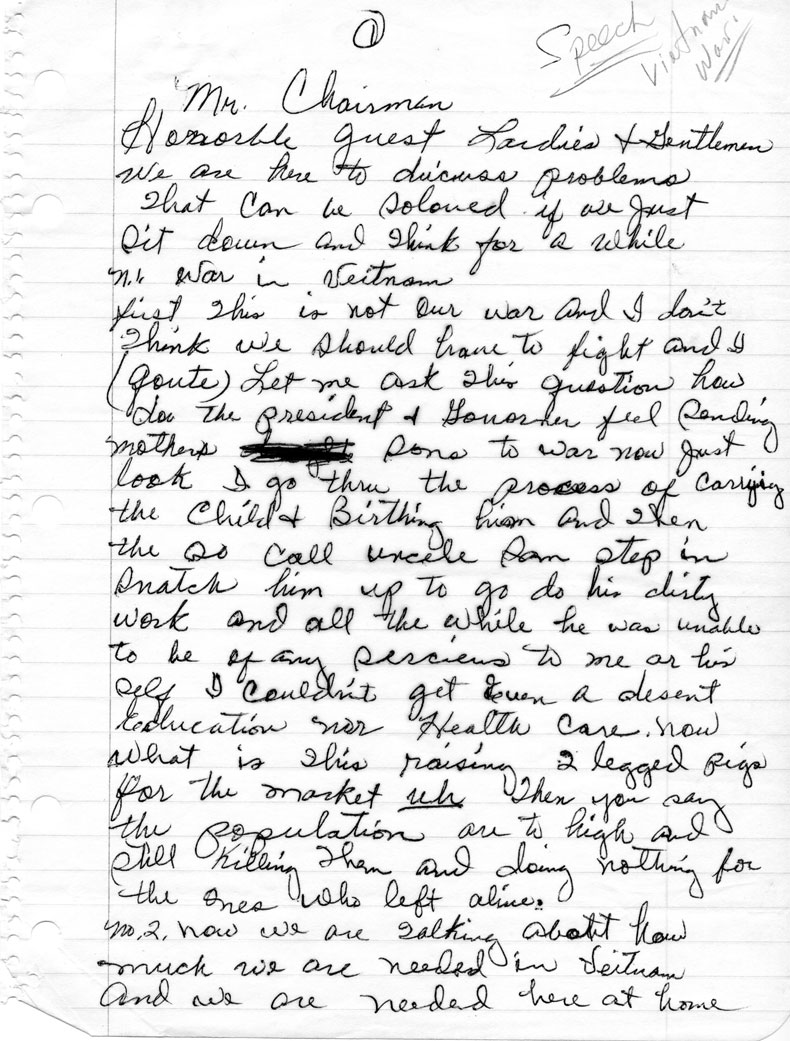 1
Speech
Vietnam
War.
Mr. Chairman
Honorble guest Lardies & Gentlemen
We are here to dicuss problems
That can be soloved if we just
sit down and think for a while
n.1. War in Veitnam
first This is not our war and I don't
Think we should have to fight and I
(qoute) Let me ask this question how
dou the president & Gonorner feel sending
mothers sons to war now just
look I go thru the process of carrying
the Child & Birthing him and then
the so call uncele Sam step in
snatch him up to go do his dirty
work and all the while he was unable
to be of any serciens to me or his
self I couldn't get Even a desent
Education nor Health Care. now
what is this raising 2 legged pigs
for the market uh Then you say
the population are to high and
still killing them and doing nothing for
the ones who left alive.
no. 2. now we are talking about how
much we are needed in Veitnam
and we are needed here at home